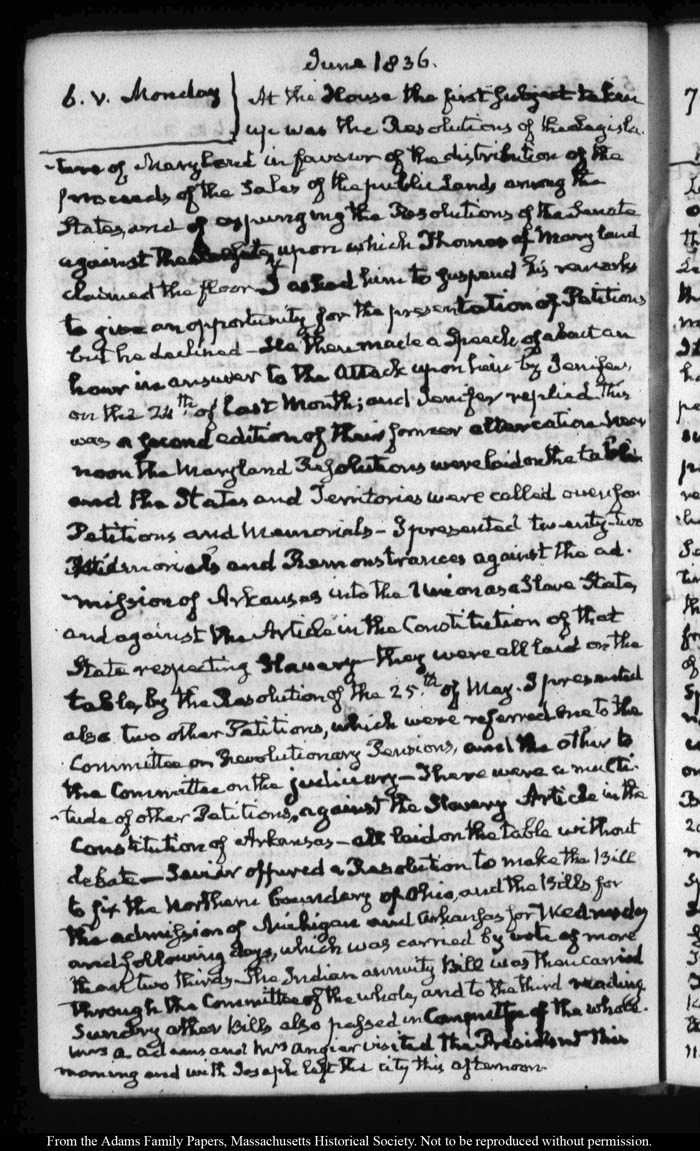 June 1836.
6. V. Monday
At the House the first subject taken
up was the Resolutions of the Legisla-
-ture of Maryland in favour of the distribution of the
proceeds of the Sales of the public Lands among the
States, and of expunging the Resolutions of the Senate
against the upon which Thomas of Maryland
claimed the floor. I asked him to suspend his remarks
to give an opportunity for the presentation of Petitions
but he declined – He then made a Speech of about an
hour in answer to the Attack upon him by Jenifer,
on the 24th of last Month; and Jenifer replied. This
was a second edition of their former altercation. Near
noon the Maryland Resolutions were laid on the table
and the States and Territories were called over for
Petitions and Memorials – I presented twenty-two
Memorials and Remonstrances against the ad-
-mission of Arkansas into the Union as a Slave State,
and against the Article in the Constitution of that
State respecting Slavery – they were all laid on the
table, by the Resolution of the 25th of May. I presented
also two other Petitions, which were referred one to the
Committee on Revolutionary Pensions, and the other to
the Committee on the judiciary – There were a multi-
-tude of other Petitions, against the Slavery Article in the
Constitution of Arkansas – all laid on the table without
debate – Sevier offered a Resolution to make the Bill
to fix the Northern boundary of Ohio, and the Bills for
the admission of Michigan and Arkansas for Wednesday
and following days, which was carried by vote of more
than two thirds – The Indian annuity Bill was then carried
through the Committee of the whole, and to the third reading
Sundry other Bills also passed in Committee of the whole.
Mrs A. Adams and Mrs Angier visited the President this
morning and with Joseph left the city this afternoon.
7
From the Adams Family Papers, Massachusetts Historical Society. Not to be reproduced without permission.